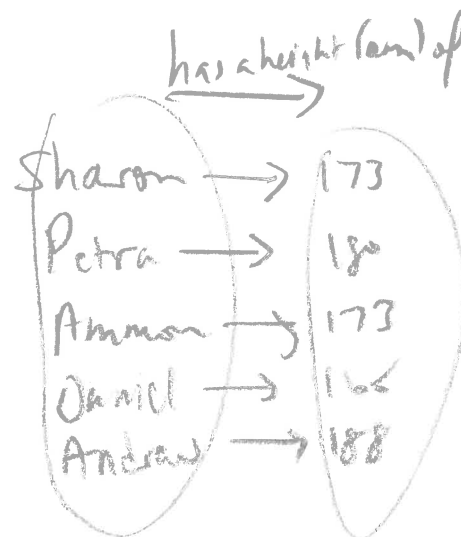 has a height (cm) of
Sharon → 173
Petra → 180
Ammon → 173
Daniel →
Andrew → 188